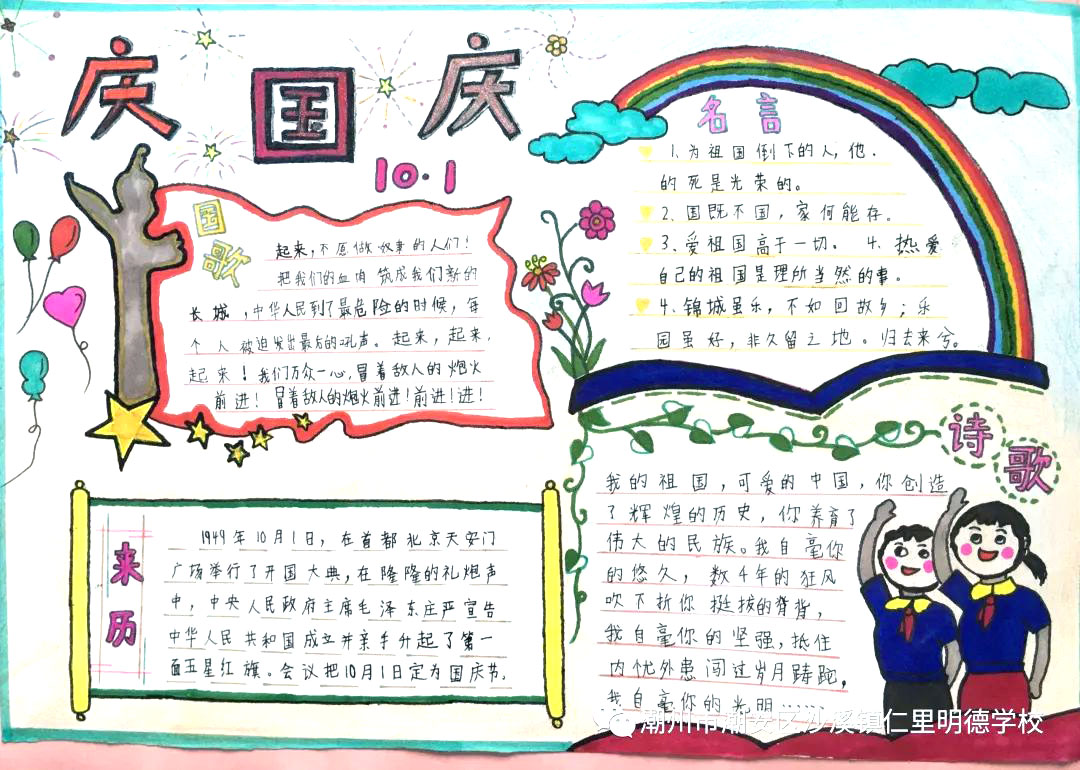 庆国庆
10.1
国歌
起来,不愿做奴隶的人们!
把我们的血肉筑成我们新的
长城,中华人民到了最危险的时候,每
个人被迫发出最后的吼声。起来,起来,
起来!我们万众一心,冒着敌人的炮火
前进!冒着敌人的炮火前进!前进!进!
名言
1.为祖国倒下的人,他.
的死是光荣的。
2、国既不国,家何能存。
3、爱祖国高于一切。 4、热爱
自己的祖国是理所当然的事。
4、锦城虽乐,不如回故乡;乐
园虽好,非久留之地。归去来兮。
来历
1949年10月1日,在首都北京天安门
广场举行了开国大典,在隆隆的礼炮声
中,中央人民政府主席毛泽东庄严宣告
中华人民共和国成立并亲手升起了第一
面五星红旗。会议把10月1日定为国庆节.
诗歌
我的祖国,可爱的中国,你创造
了辉煌的历史,你养育了
伟大的民族。我自毫你
的悠久,数4年的狂风
吹下折你挺拔的脊背,
我自毫你的坚强,抵住
内忧外患闯过岁月蹉跑,
我自毫你的光明……
潮州市潮安区沙溪镇仁里明德学校